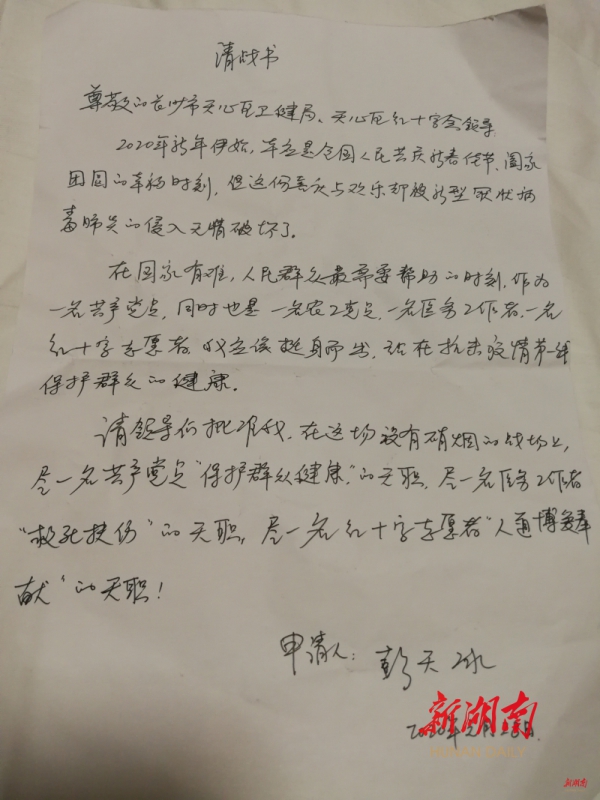 请战书
尊敬的长沙市天心区卫健局、天心区红十字会领导
2020年新年伊始,本应是全国人民共庆新春佳节、阖家
团圆的幸福时刻,但这份喜庆与欢乐却被新型冠状病
毒肺炎的侵入无情破坏了。
在国家有难,人民群众最需要帮助的时刻,作为
一名共产党员,同时也是一名农工党员,一名医务工作者,一名
红十字志愿者,我应该挺身而出,站在抗击疫情第一线
保护群众的健康。
请领导们批准我,在这场没有硝烟的战场上,
尽一名共产党员"保护群众健康"的天职,尽一名医务工作者
"救死扶伤"的天职,尽一名红十字志愿者"人道博爱奉
献"的天职!
申请人:彭天冰
2020年
新湖南
新湖南